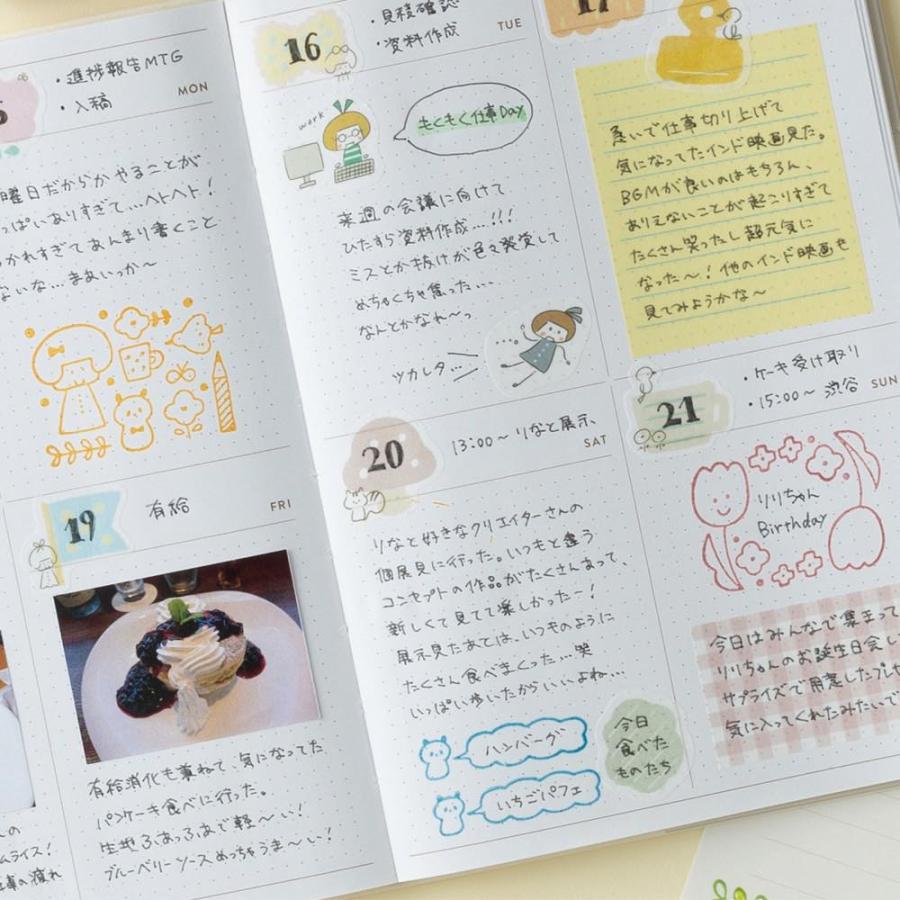 ・進捗報告MTG
・入稿
MON
曜日だからか やることが
っぱいありすぎて…ヘトヘト!
かれすぎてあんまり書くこと
ないな…まあいっか〜
16
・見積確認
・資料作成
TUE
work
もくもく仕事Day
来週の会議に向けて
ひたすら資料作成…!!!
ミスとか抜けが色々発覚して
めちゃくちゃ焦った…
なんとかなれ〜っ
ツカレタ…
17
急いで仕事切り上げて
気になってたインド映画見た。
BGMが良いのはもちろん、
ありえないことが起こりすぎて
たくさん笑ったし超元気に
なった〜!他のインド映画も
見てみようかな〜
19
有給
FRI
有給消化も兼ねて、気になってた
パンケーキ食べに行った。
生地ふあっふあで軽〜い!
ブルーベリーソースめっちゃうま〜い!
20
13:00〜 りなと展示
SAT
りなと好きなクリエイターさんの
個展見に行った。いつもと違う
コンセプトの作品がたくさんあって、
新しくて見てて楽しかったー!
展示見たあとは、いつものように
たくさん食べまくった…笑
いっぱい歩いたからいいよね…
ハンバーグ
いちごパフェ
今日
食べた
ものたち
21
・ケーキ受け取り
・15:00〜 渋谷
SUN
りりちゃん
Birthday
今日はみんなで集まって
りりちゃんのお誕生日会し
サプライズで用意したプレゼ
気に入ってくれたみたいで
ムライス!